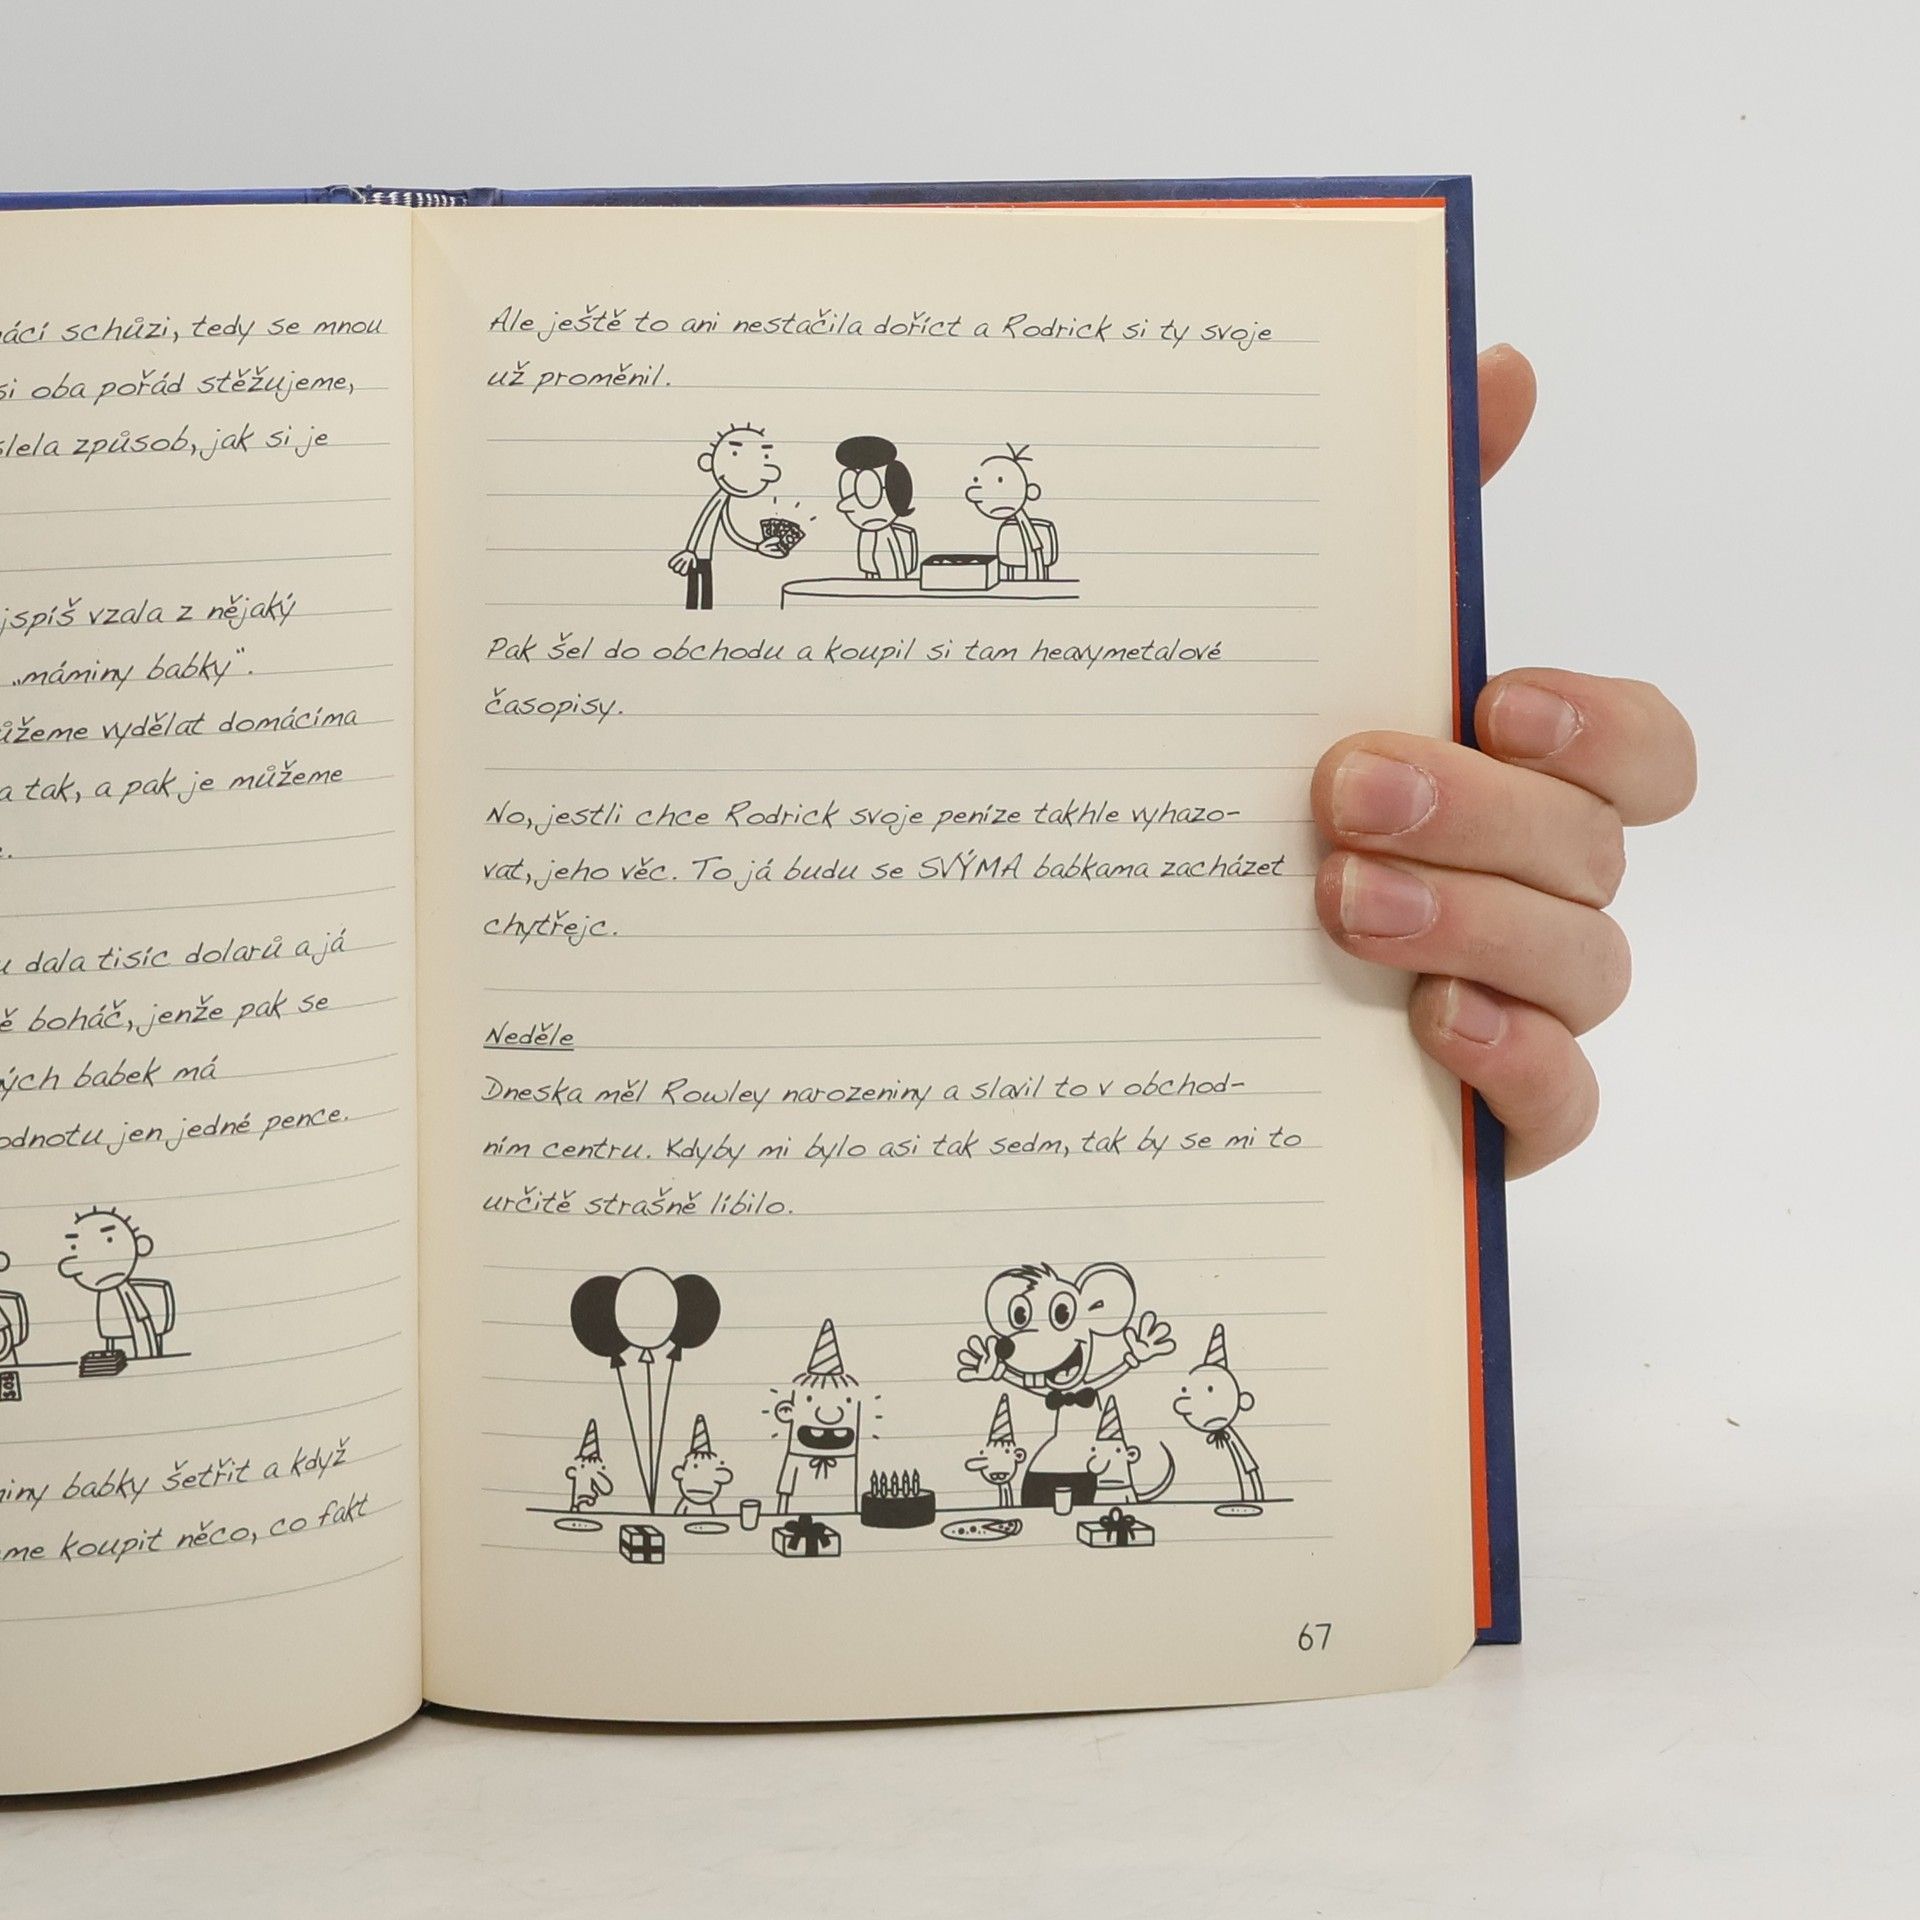 ácí schůzi, tedy se mnou
si oba pořád stěžujeme,
slela způsob, jak si je
jspíš vzala z nějaký
„máminy babky“.
ůžeme vydělat domácíma
a tak, a pak je můžeme
e.
u dala tisíc dolarů a já
ě boháč, jenže pak se
ých babek má
odnotu jen jedné pence.
iny babky šetřit a když
me koupit něco, co fakt
Ale ještě to ani nestačila doříct a Rodrick si ty svoje
už proměnil.
Pak šel do obchodu a koupil si tam heavymetalové
časopisy.
No, jestli chce Rodrick svoje peníze takhle vyhazo-
vat, jeho věc. To já budu se SVÝMA babkama zacházet
chytřejc.
Neděle
Dneska měl Rowley narozeniny a slavil to v obchod-
ním centru. Kdyby mi bylo asi tak sedm, tak by se mi to
určitě strašně líbilo.
67